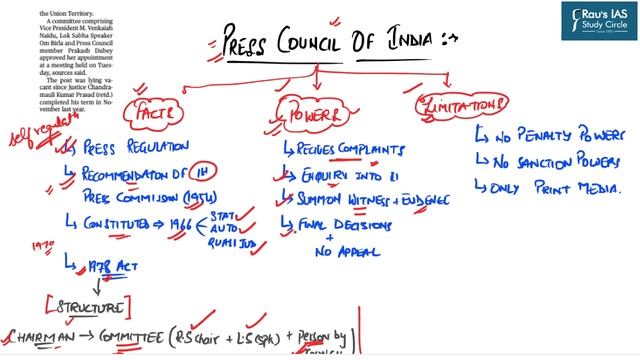 the Union Territory.
A committee comprising
Vice President M. Venkaiah
Naidu, Lok Sabha Speaker
Om Birla and Press Council
member Prakash Dubey
approved her appointment
at a meeting held on Tues-
day, sources said.
The post was lying va-
cant since Justice Chandra-
mauli Kumar Prasad (retd.)
completed his term in No-
vember last year.
Rau's IAS
Study Circle
PRESS COUNCIL OF INDIA :→
FACTS
POWERS
LIMITATIONS
self regulatn
PRESS REGULATION
RECOMMENDATION OF IH
PRESS COMMISSION (1954)
CONSTITUTED → 1966
STAT
AUTO
QUASI JUD
1970
1978 ACT
[STRUCTURE]
CHAIRMAN → COMMITTEE (R.S chair + L.S (spk) + person by
RECIEVES COMPLAINTS
ENQUIRY INTO it
SUMMON WITNESS + EVIDENCE
FINAL DECISIONS
+
NO APPEAL
NO PENALTY POWERS
NO SANCTION POWERS
ONLY PRINT MEDIA.